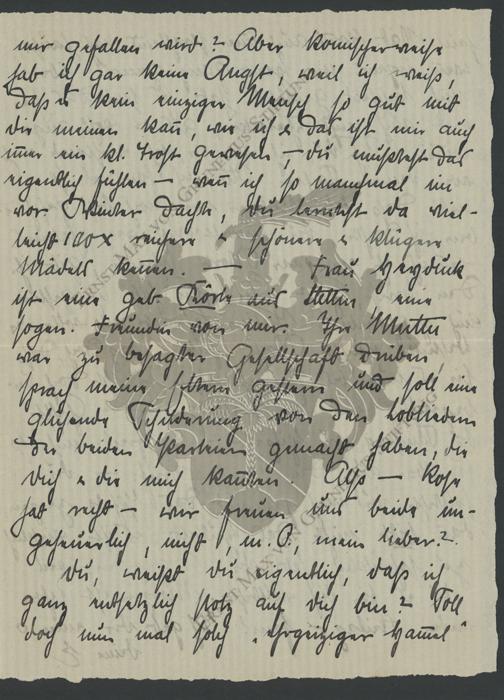 mir gefallen wird? Aber komischerweise
hab ich gar keine Angst, weil ich weiß,
daß kein einziger Mensch so gut mit
dir meinen kañ, wie ich & das ist mir auch
im̃er ein kl. Trost gewesen, – du müßtest das
eigentlich fühlen – weñ ich so manchmal im
vor. Winter dachte, du lernst da viel-
leicht 100 x reichere & schönere & klügere
Mädels keñen. — Frau Heyduck
ist eine geb. aus Stettin, eine
sogen. Freundin von mir. Ihre Mutter
war zu besagter Gesellschaft drüben,
sprach meine Eltern gestern und soll eine
glühende Schilderung von den Lobliedern
der beiden Parteien gemacht haben, die
dich & die mich kañten. Also —
hat recht – wir freuen uns beide un-
geheuerlich, nicht, m. O., mein lieber?
Du, weißt du eigentlich, daß ich
ganz entsetzlich stolz auf dich bin? Toll
doch nun mal solch „ehrgeiziger Hammel"